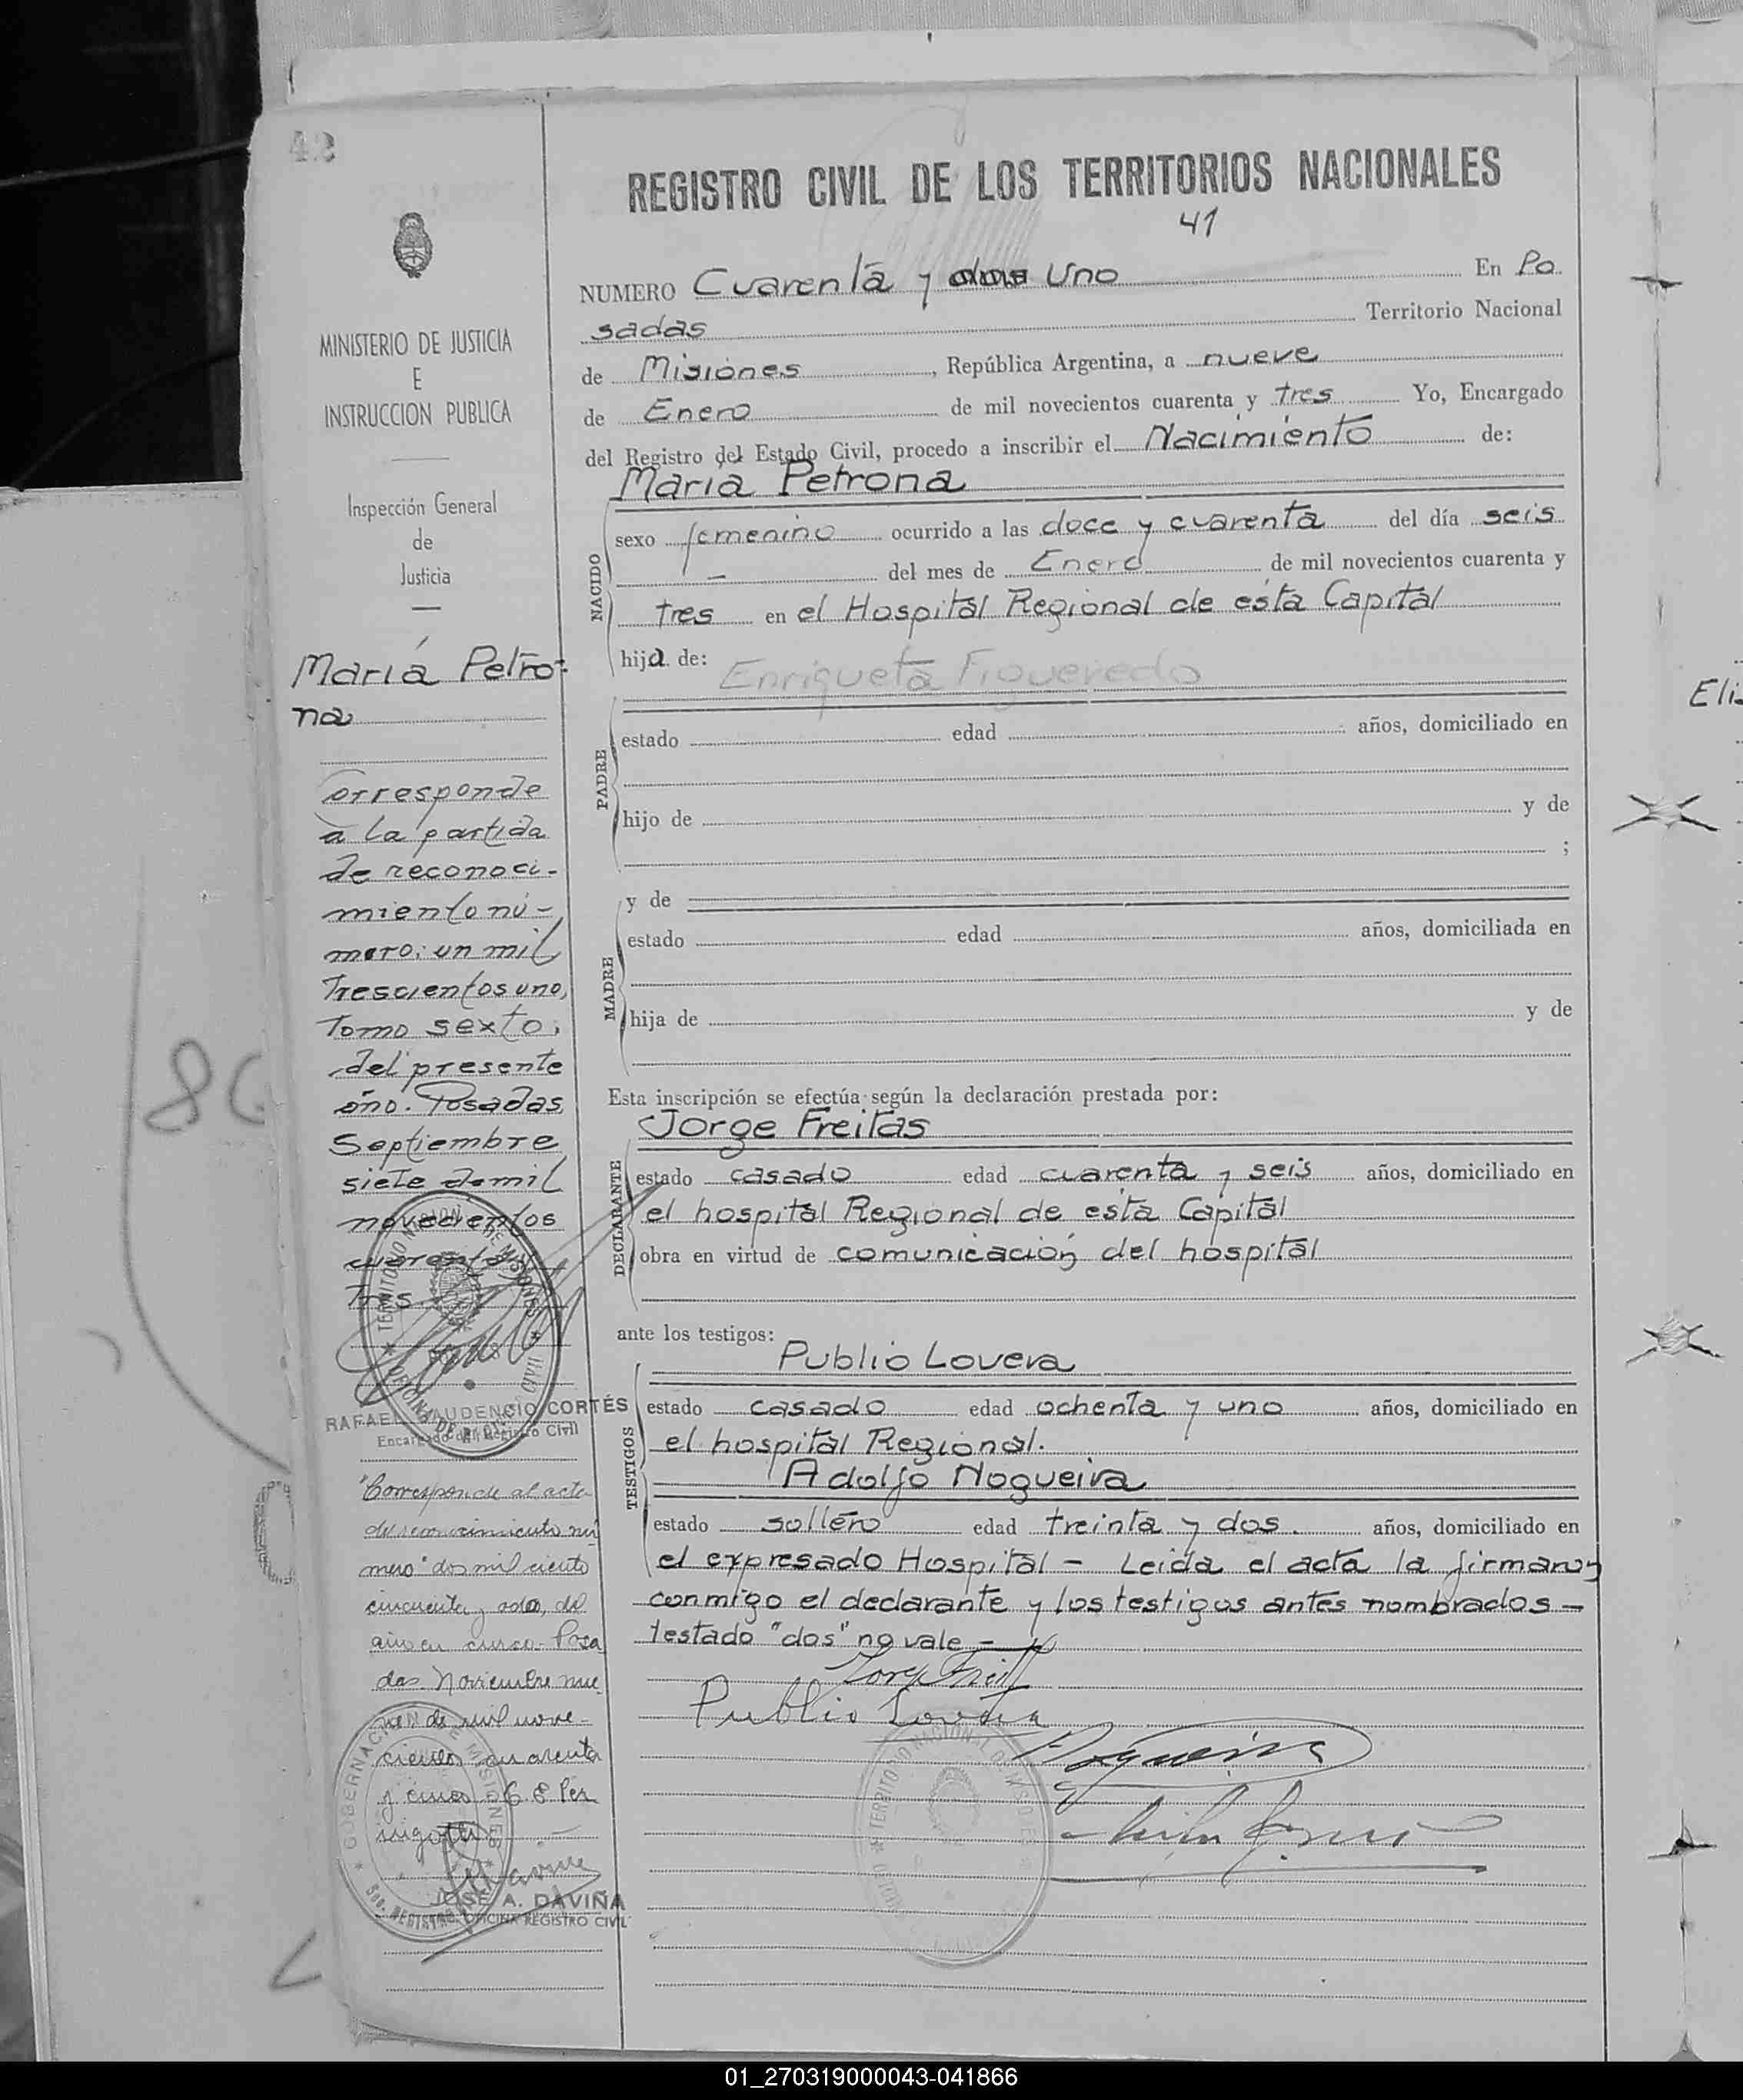 42
REGISTRO CIVIL DE LOS TERRITORIOS NACIONALES
41
NUMERO Cuarenta y dos Uno En Po
sadas Territorio Nacional
de Misiones, República Argentina, a nueve
de Enero de mil novecientos cuarenta y tres Yo, Encargado
del Registro del Estado Civil, procedo a inscribir el Nacimiento de:
María Petrona
NACIDO
sexo femenino ocurrido a las doce y cuarenta del día seis
— del mes de Enero de mil novecientos cuarenta y
tres en el Hospital Regional de esta Capital
hija de: Enriqueta Figueredo
PADRE
estado edad años, domiciliado en
hijo de y de
;
MADRE
y de
estado edad años, domiciliada en
hija de y de
Esta inscripción se efectúa según la declaración prestada por:
Jorge Freitas
DECLARANTE
estado casado edad cuarenta y seis años, domiciliado en
el hospital Regional de esta Capital
obra en virtud de comunicación del hospital
ante los testigos:
Publio Lovera
TESTIGOS
estado casado edad ochenta y uno años, domiciliado en
el hospital Regional.
Adolfo Nogueira
estado soltero edad treinta y dos. años, domiciliado en
el expresado Hospital - Leida el acta la firmaron
conmigo el declarante y los testigos antes nombrados -
testado "dos" no vale -
Publio Lovera
Nogueira
MINISTERIO DE JUSTICIA
E
INSTRUCCION PUBLICA
Inspección General
de
Justicia
María Petro-
na
Corresponde
a la partida
de reconoci-
miento nú-
mero: un mil
Trescientos uno,
Tomo sexto,
del presente
año. Posadas,
Septiembre
siete de mil
novecientos
cuarenta y
Tres.
TERRITORIO NACIONAL DE MISIONES
RAFAEL GAUDENCIO CORTÉS
Encargado del Registro Civil
"Corresponde al acta
de reconocimiento nú
mero" dos mil ciento
cincuenta y ocho, del
año en curso- Posa
das. Noviembre nue
ve de mil nove-
cientos cuarenta
y cinco
GOBERNACION DE MISIONES
JOSE A. DAVIÑA
OFICINA REGISTRO CIVIL
Elis
01_270319000043-041866